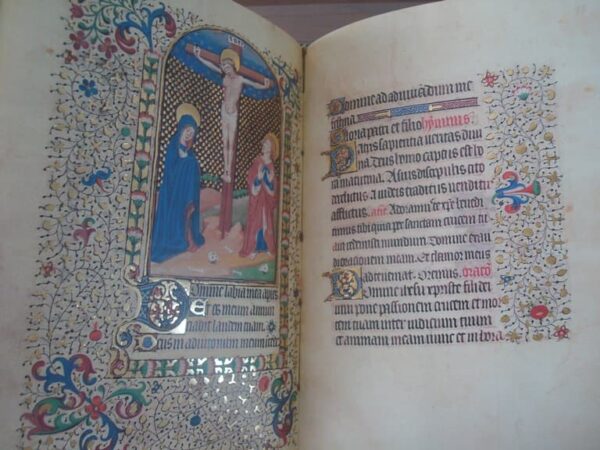 INRI
Domine labia mea apies
Et os meum annun
ciabit laudem tuam.
Deus in adiutorium meum
Domine ad adiuvandum me
festina.
Gloria patri et filio hymnus.
Patris sapientia veritas divi
na Deus homo captus est ho
ra matutina. A suis discipulis cito
derelictus. A iudeis traditus venditus
afflictus. Adoramus te xpe et benedi
cimus tibi quia per sanctam crucem tu
am redemisti mundum. Domine exau
di orationem meam. Et clamor meus
ad te veniat. Oremus. oratio
Domine ihesu xpiste fili dei
vivi pone passionem crucem et mor
tem tuam inter iudicium tuum
et animam meam nunc et in hora